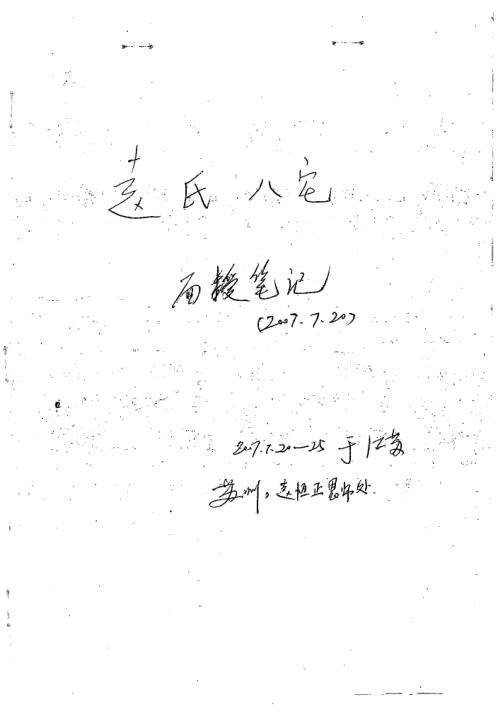 袁氏八宅
面授笔记
(2007.7.20)
2007.7.20—25 于江苏
苏州，袁恒正恩师处.